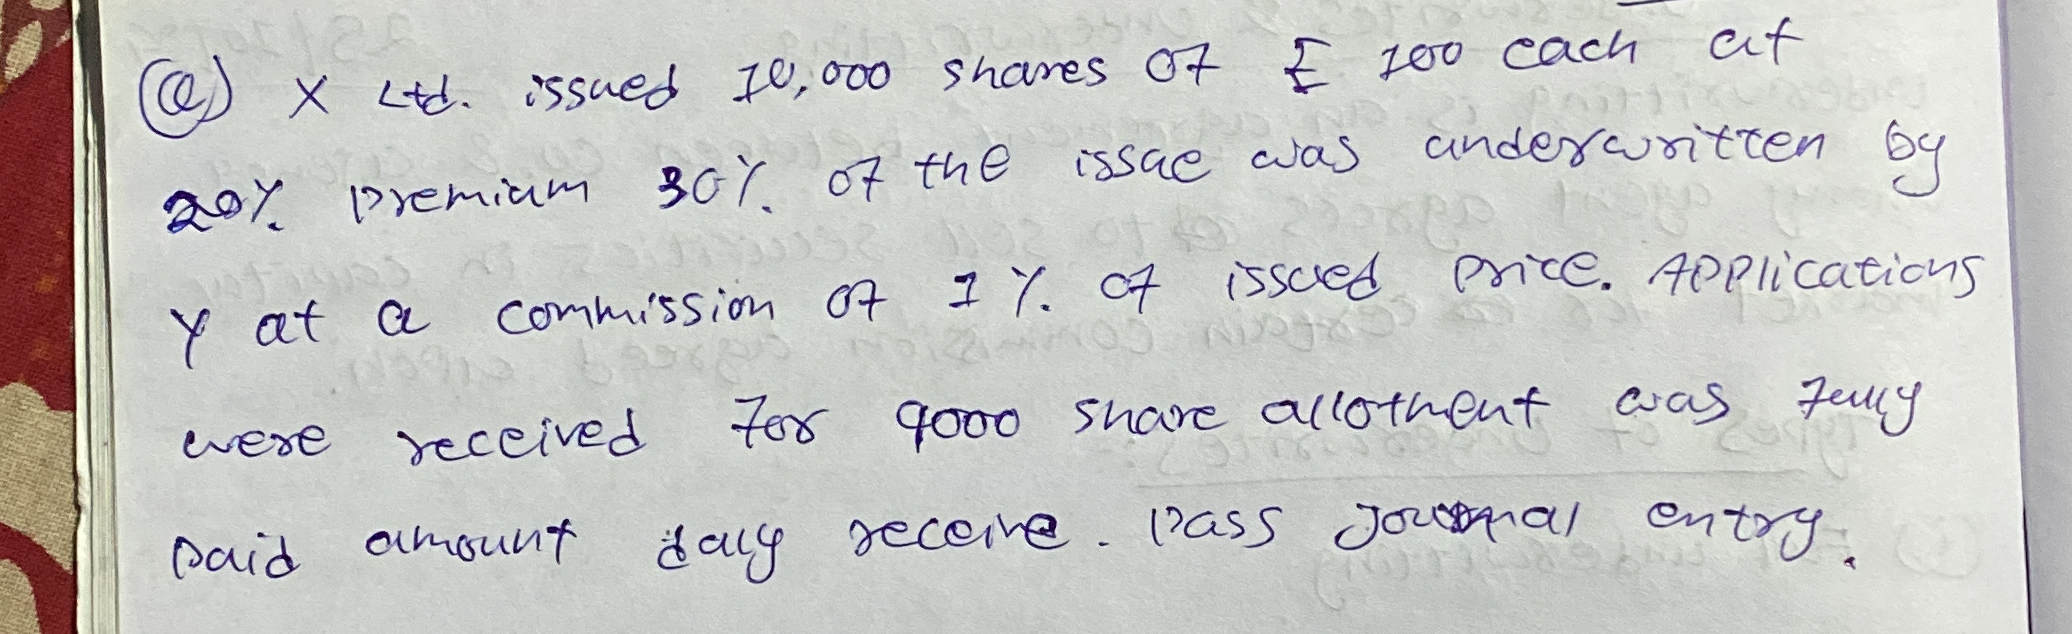 (Q) X Ltd. issued 10,000 shares of ₹ 100 each at
20% premium 30% of the issue was underwritten by
Y at a commission of 1% of issued price. Applications
were received for 9000 share allotment was fully
paid amount duly receive. Pass Journal entry.